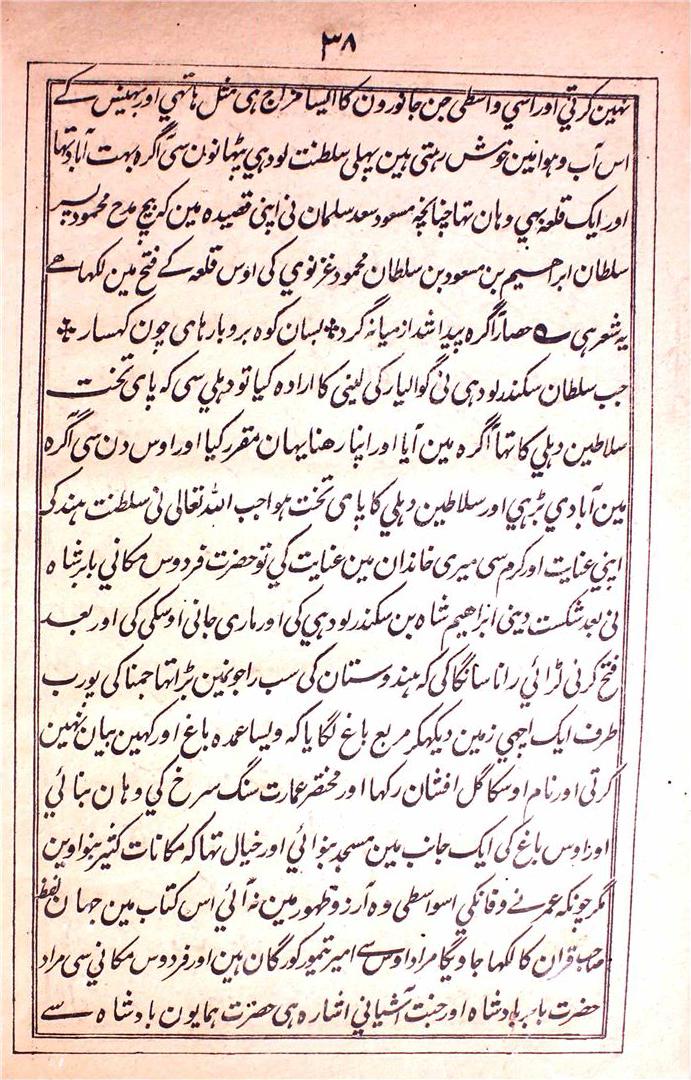 ۳۸
نہین کرتي اور اسي واسطی جن جانورون کا ایسا مزاج ہی مثل ہاتھي اور بہینس کے
اس آب و ہوا مین خوش رہتی ہین پہلی سلطنت لودہي پٹہانون سی آگرہ بہت آباد تہا
اور ایک قلعہ بہي وہان تہا چنانچہ مسعود سعد سلمان نی اپنی قصیدہ مین کہ بیچ مدح محمود پسر
سلطان ابراھیم بن مسعود بن سلطان محمود غزنوي کی اوس قلعہ کے فتح مین لکہا ھے
یہ شعر ہی حصار آگرہ پیدا شد از میانہ گرد بسان کوہ برو بارہای چون کہسار
جب سلطان سکندر لودہی نی گوالیار کی لینی کا ارادہ کیا تو دہلي سی کہ پای تخت
سلاطین دہلي کا تہا آگرہ مین آیا اور اپنا رہنا یہان مقرر کیا اور اوس دن سی آگرہ
مین آبادي بڑہي اور سلاطین دہلي کا پای تخت ہوا جب اللہ تعالی نی سلطنت ہند کی
اپني عنایت اور کرم سی میری خاندان مین عنایت کي تو حضرت فردوس مکاني بابر شاہ
نی بعد شکست دینی ابراھیم شاہ بن سکندر لودہي کی اور ماری جانی اوسکی کی اور بعد
فتح کرنی لڑائي رانا سانگا کی کہ ہندوستان کی سب راجونمین بڑا تہا جمنا کی پورب
طرف ایک اچھي زمین دیکھکر مربع باغ لگایا کہ ویسا عمدہ باغ اور کہین بیان نہین
کرتی اور نام اوسکا گل افشان رکہا اور مختصر عمارت سنگ سرخ کي وہان بنائي
اور اوس باغ کی ایک جانب مین مسجد بنوائي اور خیال تہا کہ مکانات کثیر بنواوین
مگر چونکہ عمر نے وفا نکي اسواسطی وہ آرزو ظہور مین نہ آئي اس کتاب مین جہان لفظ
صاحب قران کا لکہا جاویگا مراد اوس سے امیر تیمور گورگان ہین اور فردوس مکاني سی مراد
حضرت بابر بادشاہ اور جنت آشیاني اشارہ ہی حضرت ہمایون بادشاہ سے